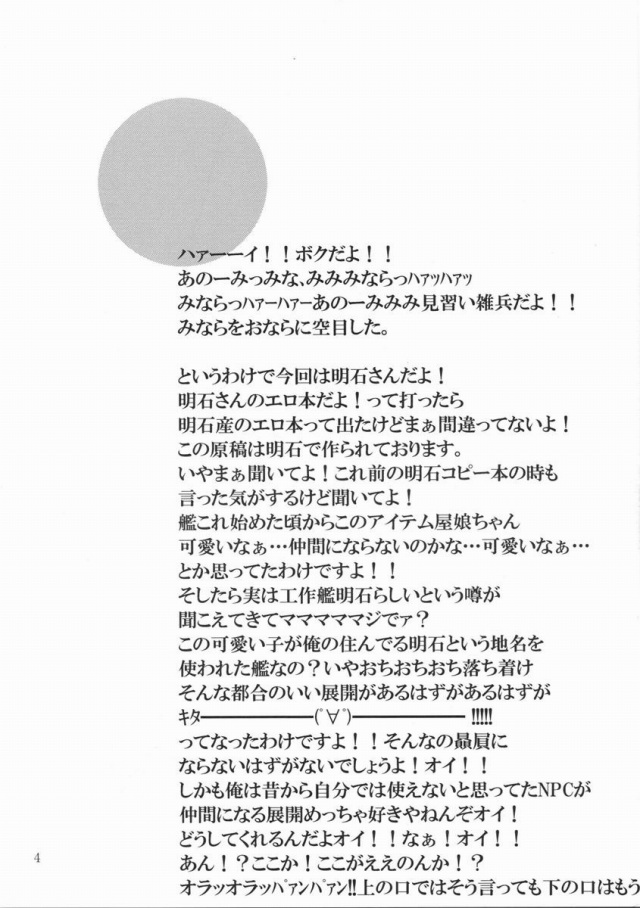 ハァーーイ！！ボクだよ！！
あのーみっみな、みみみならっﾊｧｯﾊｧｯ
みならっﾊｧｰﾊｧｰあのーみみみ見習い雑兵だよ！！
みならをおならに空目した。
というわけで今回は明石さんだよ！
明石さんのエロ本だよ！って打ったら
明石産のエロ本って出たけどまぁ間違ってないよ！
この原稿は明石で作られております。
いやまぁ聞いてよ！これ前の明石コピー本の時も
言った気がするけど聞いてよ！
艦これ始めた頃からこのアイテム屋娘ちゃん
可愛いなぁ…仲間にならないのかな…可愛いなぁ…
とか思ってたわけですよ！！
そしたら実は工作艦明石らしいという噂が
聞こえてきてママママママジでァ？
この可愛い子が俺の住んでる明石という地名を
使われた艦なの？いやおちおちおち落ち着け
そんな都合のいい展開があるはずがあるはずが
ｷﾀ━━━━━━━(ﾟ∀ﾟ)━━━━━━━!!!!!
ってなったわけですよ！！そんなの贔屓に
ならないはずがないでしょうよ！オイ！！
しかも俺は昔から自分では使えないと思ってたNPCが
仲間になる展開めっちゃ好きやねんぞオイ！
どうしてくれるんだよオイ！！なぁ！オイ！！
あん！？ここか！ここがええのんか！？
オラッオラッﾊﾟｧﾝﾊﾟｧﾝ!!上の口ではそう言っても下の口はもう
4